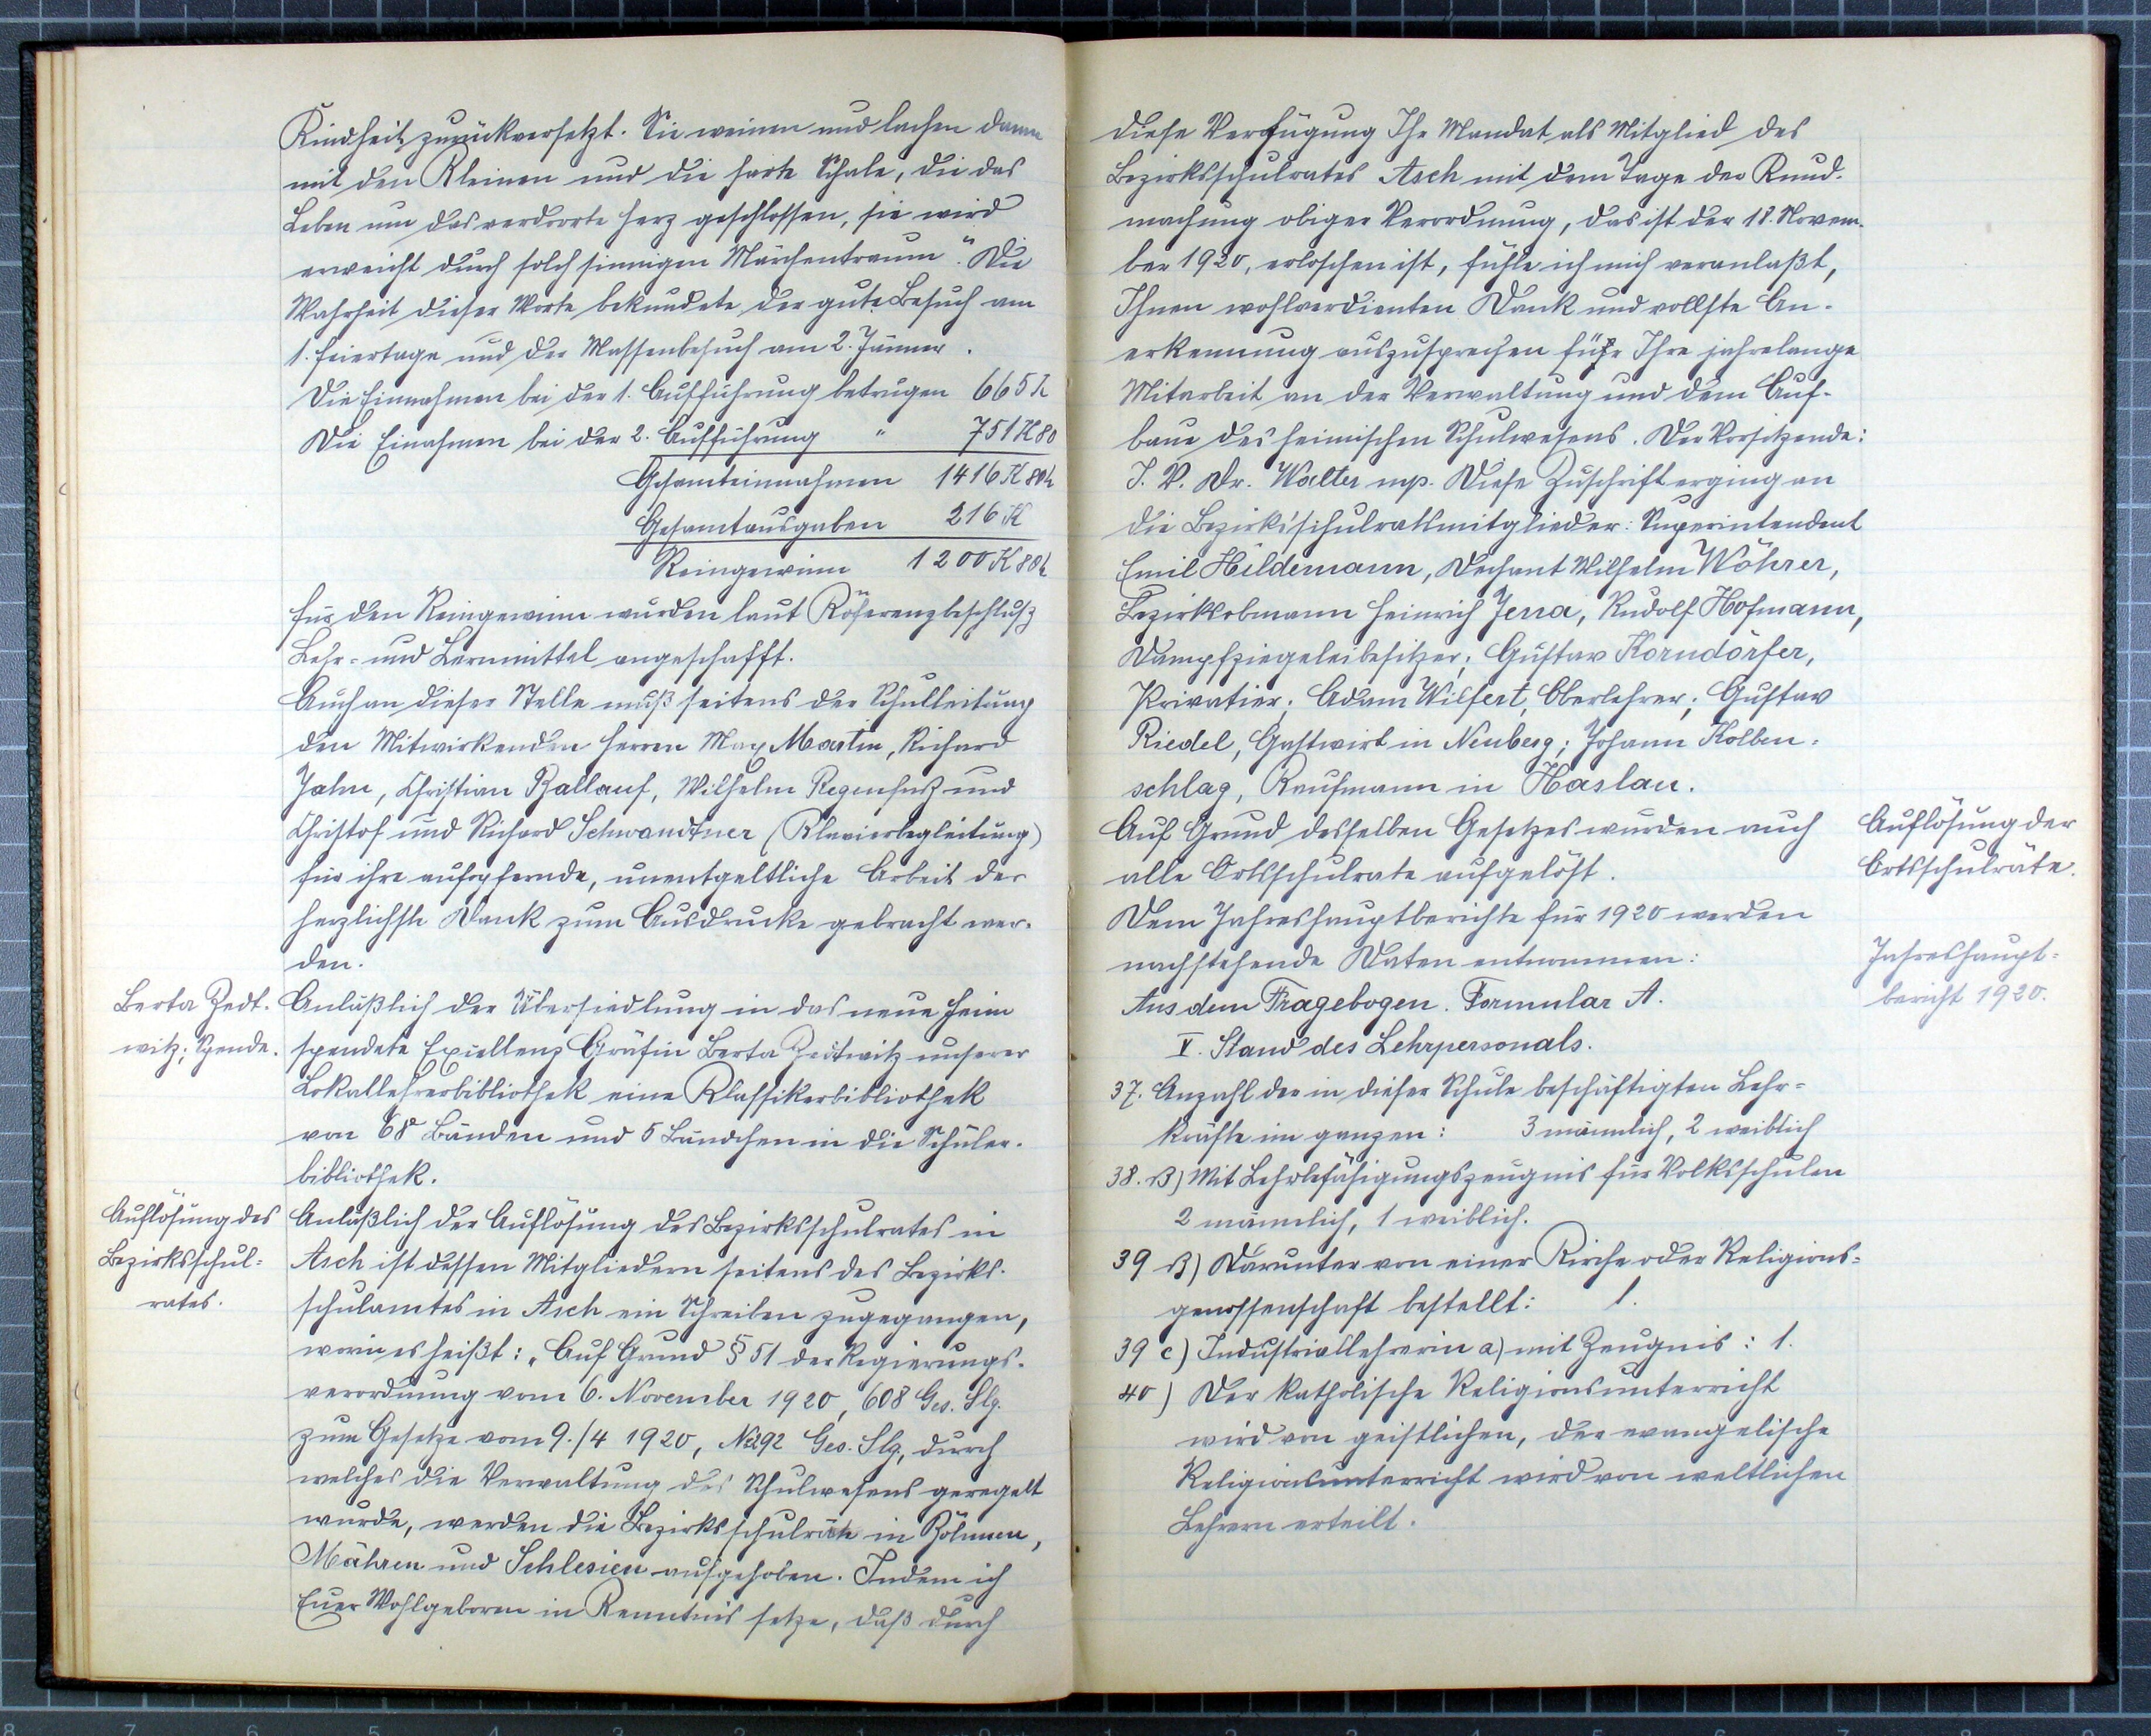 Kindheit zurückversetzt. Sie weinen und lachen dann
mit den Kleinen und die harte Schale, die das
Leben um das verdorrte Herz geschlossen, sie wird
erweicht durch solch sinnigen Märchentraum". Die
Wahrheit dieser Worte bekundete der gute Besuch am
1. Feiertage und der Massenbesuch am 2. Jänner.
Die Einnahmen bei der 1. Aufführung betrugen 665 K
Die Einahmen bei der 2. Aufführung " 751 K 80
Gesamteinnahmen 1416 K 80 h
Gesamtausgaben 216 K
Reingewinn 1200 K 80 h
Für den Reingewinn wurden laut
Lehr- und Lernmittel angeschafft.
Auch an dieser Stelle muß seitens der Schulleitung
den Mitwirkenden Herren Max Martin, Richard
Jahn, Christian Ballauf, Wilhelm Regenfuß und
Christof und Richard Schwandtner (Klavierbegleitung)
für ihre aufopfernde, unentgeltliche Arbeit der
herzlichste Dank zum Ausdrucke gebracht wer-
den.
Berta Zedt-
witz; Spende.
Anläßlich der Übersiedlung in das neue Heim
spendete Exzellenz Gräfin Berta Zedtwitz unserer
Lokallehrerbibliothek eine Klassikerbibliothek
von 68 Bänden und 5 Bändchen in die Schüler-
bibliothek.
Auflösung des
Bezirksschul-
rates.
Anläßlich der Auflösung des Bezirksschulrates in
Asch ist dessen Mitgliedern seitens des Bezirks-
schulamtes in Asch ein Schreiben zugegangen,
worin es heißt: „Auf Grund § 51 der Regierungs-
verordnung vom 6. November 1920, 608 Ges. Slg.
zum Gesetze vom 9./4 1920, No 292 Ges. Slg., durch
welches die Verwaltung des Schulwesens geregelt
wurde, werden die Bezirksschulräte in Böhmen,
Mähren und Schlesien aufgehoben. Indem ich
Euer Wohlgeboren in Kenntnis setze, daß durch
diese Verfügung Ihr Mandat als Mitglied des
Bezirksschulrates Asch mit dem Tage der Kund-
machung obiger Verordnung, das ist der 18. Novem-
ber 1920, erloschen ist, fühle ich mich veranlaßt,
Ihnen wohlverdienten Dank und vollste An-
erkennung auszusprechen für Ihre jahrelange
Mitarbeit an der Verwaltung und dem Auf-
baue des heimischen Schulwesens. Der Vorsitzende:
I. V. Dr. Walter mp. Diese Zuschrift erging an
die Bezirksschulratsmitglieder: Superintendent
Emil Hildemann, Dechant Wilhelm Wöhrer,
Bezirksobmann Heinrich Jena, Rudolf Hofmann,
Dampfziegeleibesitzer; Gustav Korndörfer,
Privatier; Adam Wilfert, Oberlehrer; Gustav
Riedel, Gastwirt in Neuberg; Johann Kolben-
schlag, Kaufmann in Haslau.
Auf Grund desselben Gesetzes wurden auch
alle Ortsschulrate aufgelöst.
Auflösung der
Ortsschulräte.
Dem Jahreshauptberichte für 1920 werden
nachstehende Daten entnommen:
Jahreshaupt-
bericht 1920.
Aus dem Fragebogen. Formular A.
V. Stand des Lehrpersonals.
37. Anzahl der in dieser Schule beschäftigten Lehr-
kräfte im ganzen: 3 männlich, 2 weiblich
38. B) Mit Lehrbefähigungszeugnis für Volksschulen
2 männlich, 1 weiblich.
39 B) Darunter von einer Kirche oder Religions-
genossenschaft bestellt: 1.
39 c) Industriallehrerin a) mit Zeugnis: 1.
40) Der katholische Religionsunterricht
wird von geistlichen, der evangelische
Religionsunterricht wird von weltlichen
Lehrern erteilt.